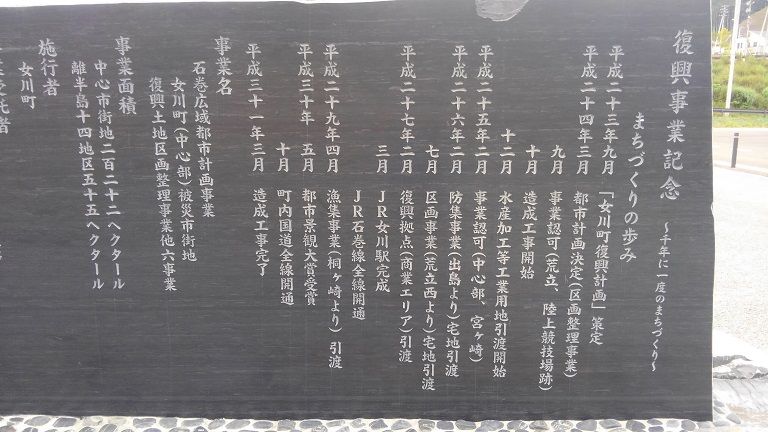 復興事業記念
～千年に一度のまちづくり～
まちづくりの歩み
平成二十三年九月 「女川町復興計画」策定
平成二十四年三月 都市計画決定(区画整理事業)
九月 事業認可(荒立、陸上競技場跡)
十月 造成工事開始
十二月 水産加工等工業用地引渡開始
平成二十五年二月 事業認可(中心部、宮ヶ崎)
平成二十六年二月 防集事業(出島より)宅地引渡
七月 区画事業(荒立西より)宅地引渡
平成二十七年二月 復興拠点(商業エリア)引渡
三月 JR女川駅完成
JR石巻線全線開通
平成二十九年四月 漁集事業(桐ヶ崎より)引渡
平成三十年 五月 都市景観大賞受賞
十月 町内国道全線開通
平成三十一年三月 造成工事完了
事業名
石巻広域都市計画事業
女川町(中心部)被災市街地
復興土地区画整理事業他六事業
事業面積
中心市街地二百二十二ヘクタール
離半島十四地区五十五ヘクタール
施行者
女川町